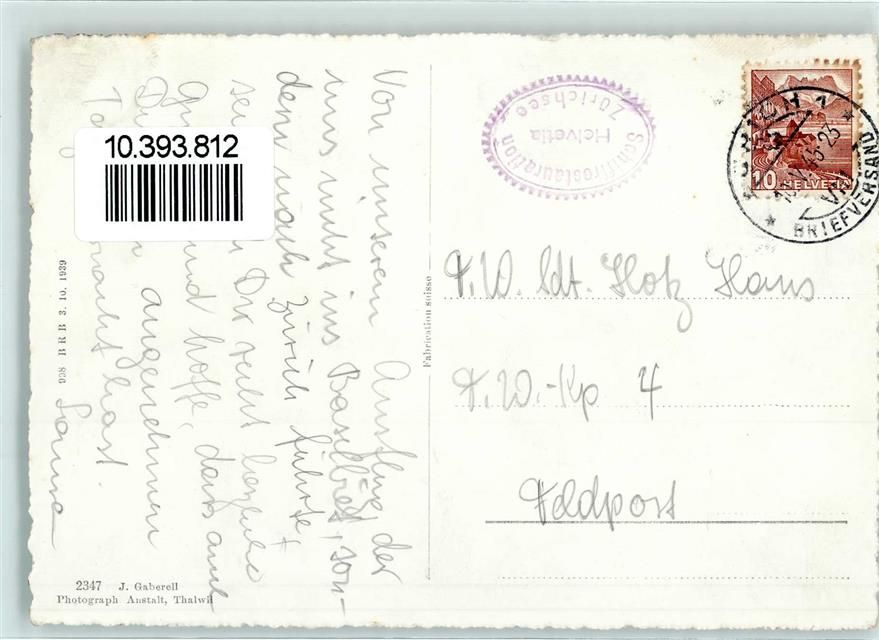 Von unserem Ausflug der
uns nicht ins Baselbiet, son-
dern nach Zürich führte,
sen Dir recht herzliche
Gr und hoffe, dass auch
Du n angenehmen
Ta gemacht hast.
10.393.812
938 BRB 3. 10. 1939
2347 J. Gaberell
Photograph Anstalt, Thalwil
Fabrication suisse
Schiffrestauration
Helvetia
Zürichsee
ZÜRICH 1
BRIEFVERSAND
10 HELVETIA
F.W. Sdt. Hotz Hans
F.W.-Kp 4
Feldpost